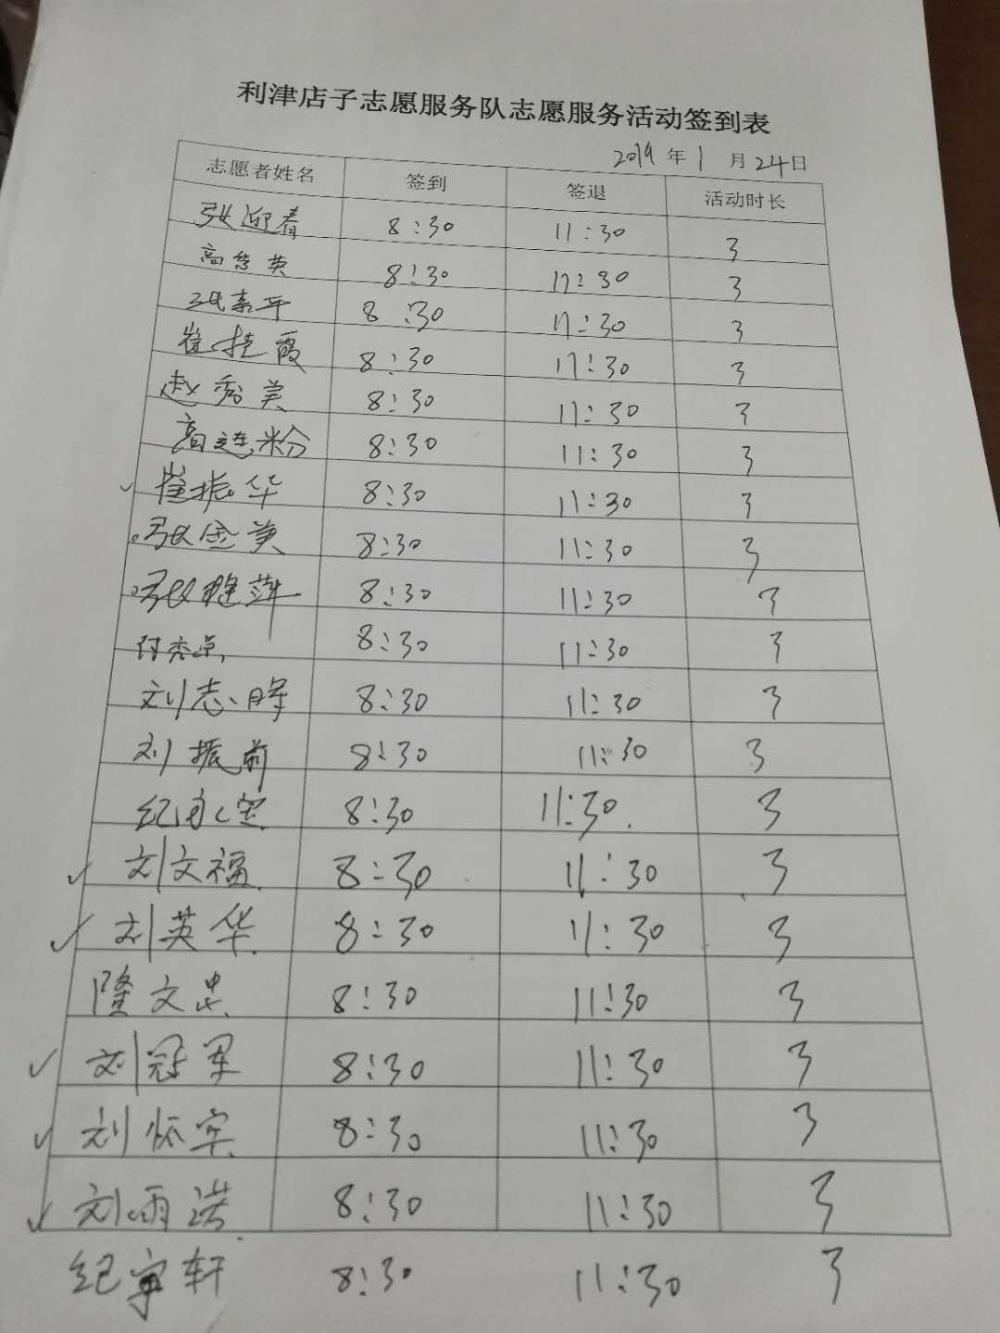 利津店子志愿服务队志愿服务活动签到表
2019年1月24日
志愿者姓名 签到 签退 活动时长
张迎春 8:30 11:30 3
高秀英 8:30 11:30 3
张素平 8:30 11:30 3
崔桂霞 8:30 11:30 3
赵秀美 8:30 11:30 3
高连粉 8:30 11:30 3
崔振华 8:30 11:30 3
张金美 8:30 11:30 3
张继萍 8:30 11:30 3
8:30 11:30 3
刘志晖 8:30 11:30 3
刘振前 8:30 11:30 3
纪永宝 8:30 11:30 3
刘文福 8:30 11:30 3
刘英华 8:30 11:30 3
隆文忠 8:30 11:30 3
刘冠军 8:30 11:30 3
刘怀宾 8:30 11:30 3
刘雨诺 8:30 11:30 3
纪宇轩 8:30 11:30 3